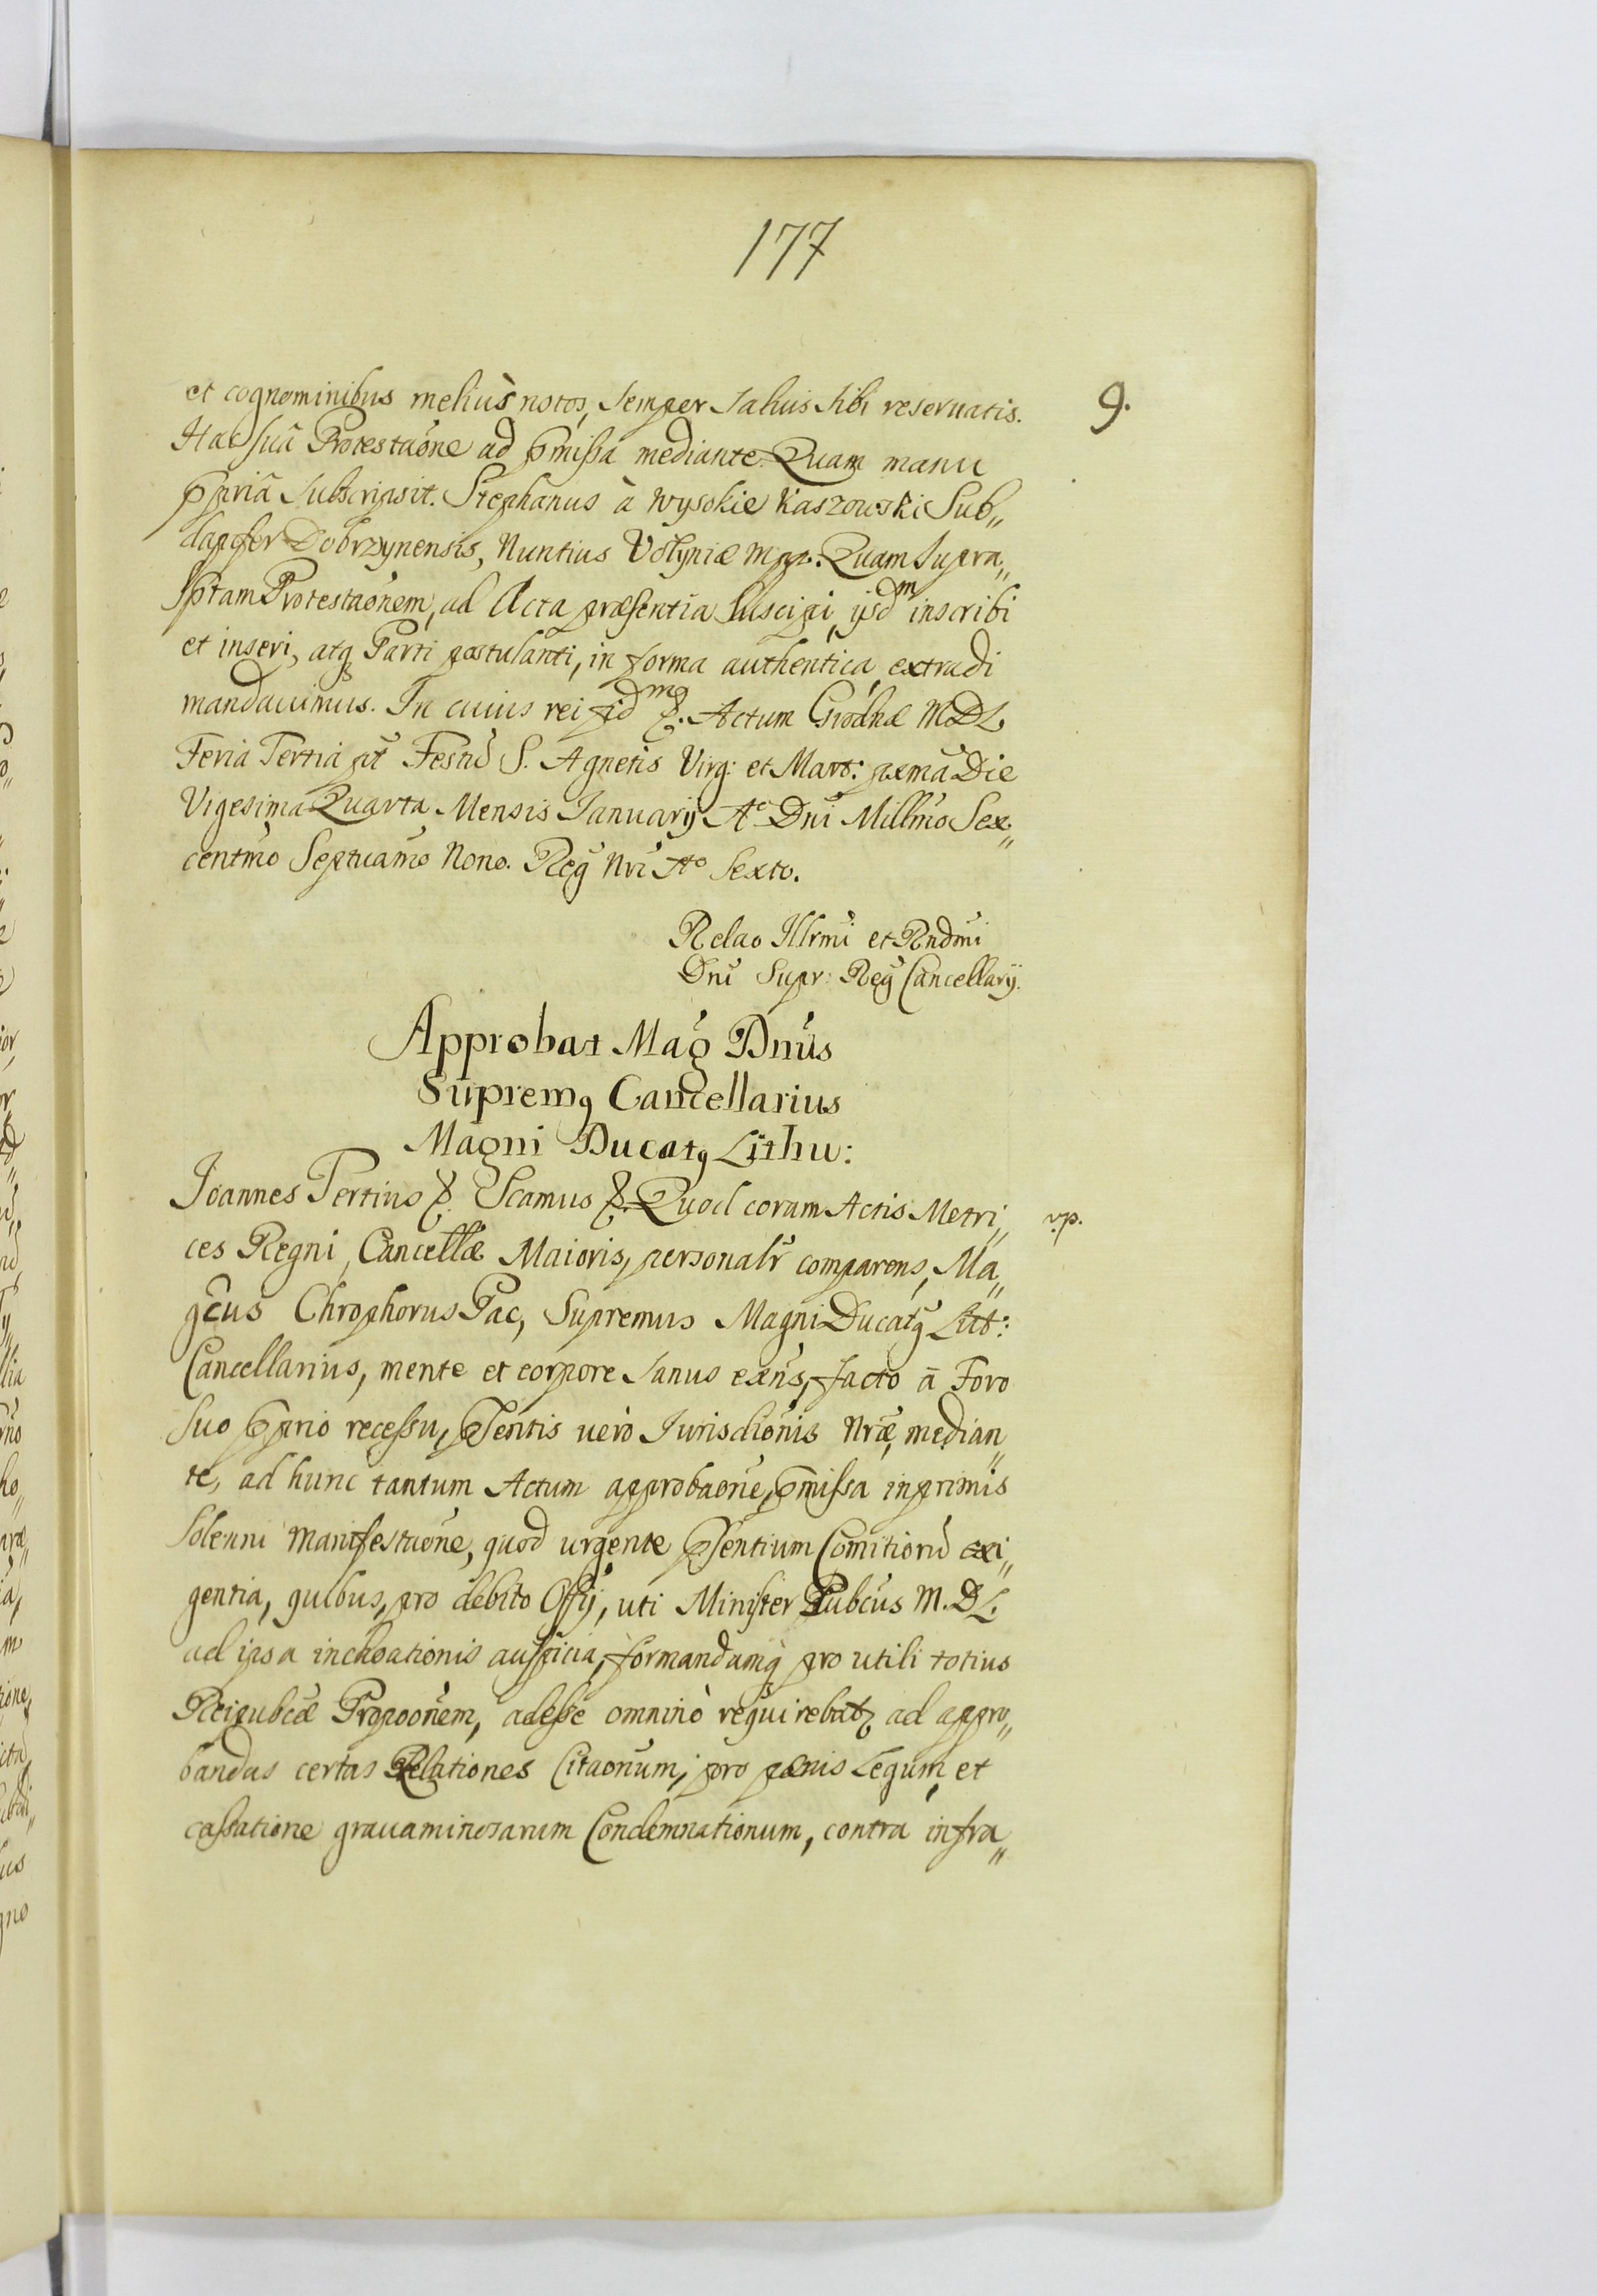 177
et cognominibus meliùs notos, semper saluis sibi reseruatis.
9.
Hac suâ Protestaõne ad p̃missa mediante. Quam manu
p̃priâ subscripsit. Stephanus à Wysokie Kaszowski Sub„
dapifer Dobrzynensis, Nuntius Volyniæ mpp. Quam supra„
sp̃tam Protestaõnem, ad Acta præsentia suscipi, ijsdm inscribi
et inseri, atq̃ Parti postulanti, in forma authentica extradi
mandauimus. In cuius rei fidm &. Actum Grodnæ M.D.L.
Feria Tertia pt̃ Festũ S. Agnetis Virg: et Mart: pxmã Die
Vigesima Quarta Mensis Januarij Ao Dnĩ Millmõ Sex„
centmõ Septuamõ Nono. Reg̃ Nrĩ Ao Sexto.
Relao Illrmĩ et Rndmĩ
Dnĩ Supr: Reg̃ Cancellarij.
Approbat Mag̃ Dnũs
Supremq Cancellarius
Magni Ducatq Lithu:
Joannes Tertius &. Scamus &. Quod coram Actis Metri„
v.p.
ces Regni, Cancellæ Maioris, personalr̃ comparens, Ma„
gcũs Chrophorus Pac, Supremus Magni Ducatq̃ Litt:
Cancellarius, mente et corpore sanus exñs, facto à Foro
suo p̃prio recessu, p̃sentis uerò Jurisdiõnis Nræ̃, median„
te, ad hunc tantum Actum approbaõne, p̃missa inprimis
solenni manifestaõne, quod urgente p̃sentium Comitiorũ exi„
gentia, quibus, pro debito Offij, uti Minister Pubcũs M.D.L.
ad ipsa inchoationis auspicia, formandamq̃ pro utili totius
Reipubcæ̃ Propoõnem, adesse omninò requirebatꝫ ad appro„
bandas certas Relationes Citaõnum, pro pœnis Legum, et
cassatione grauaminosarum Condemnationum, contra infra„